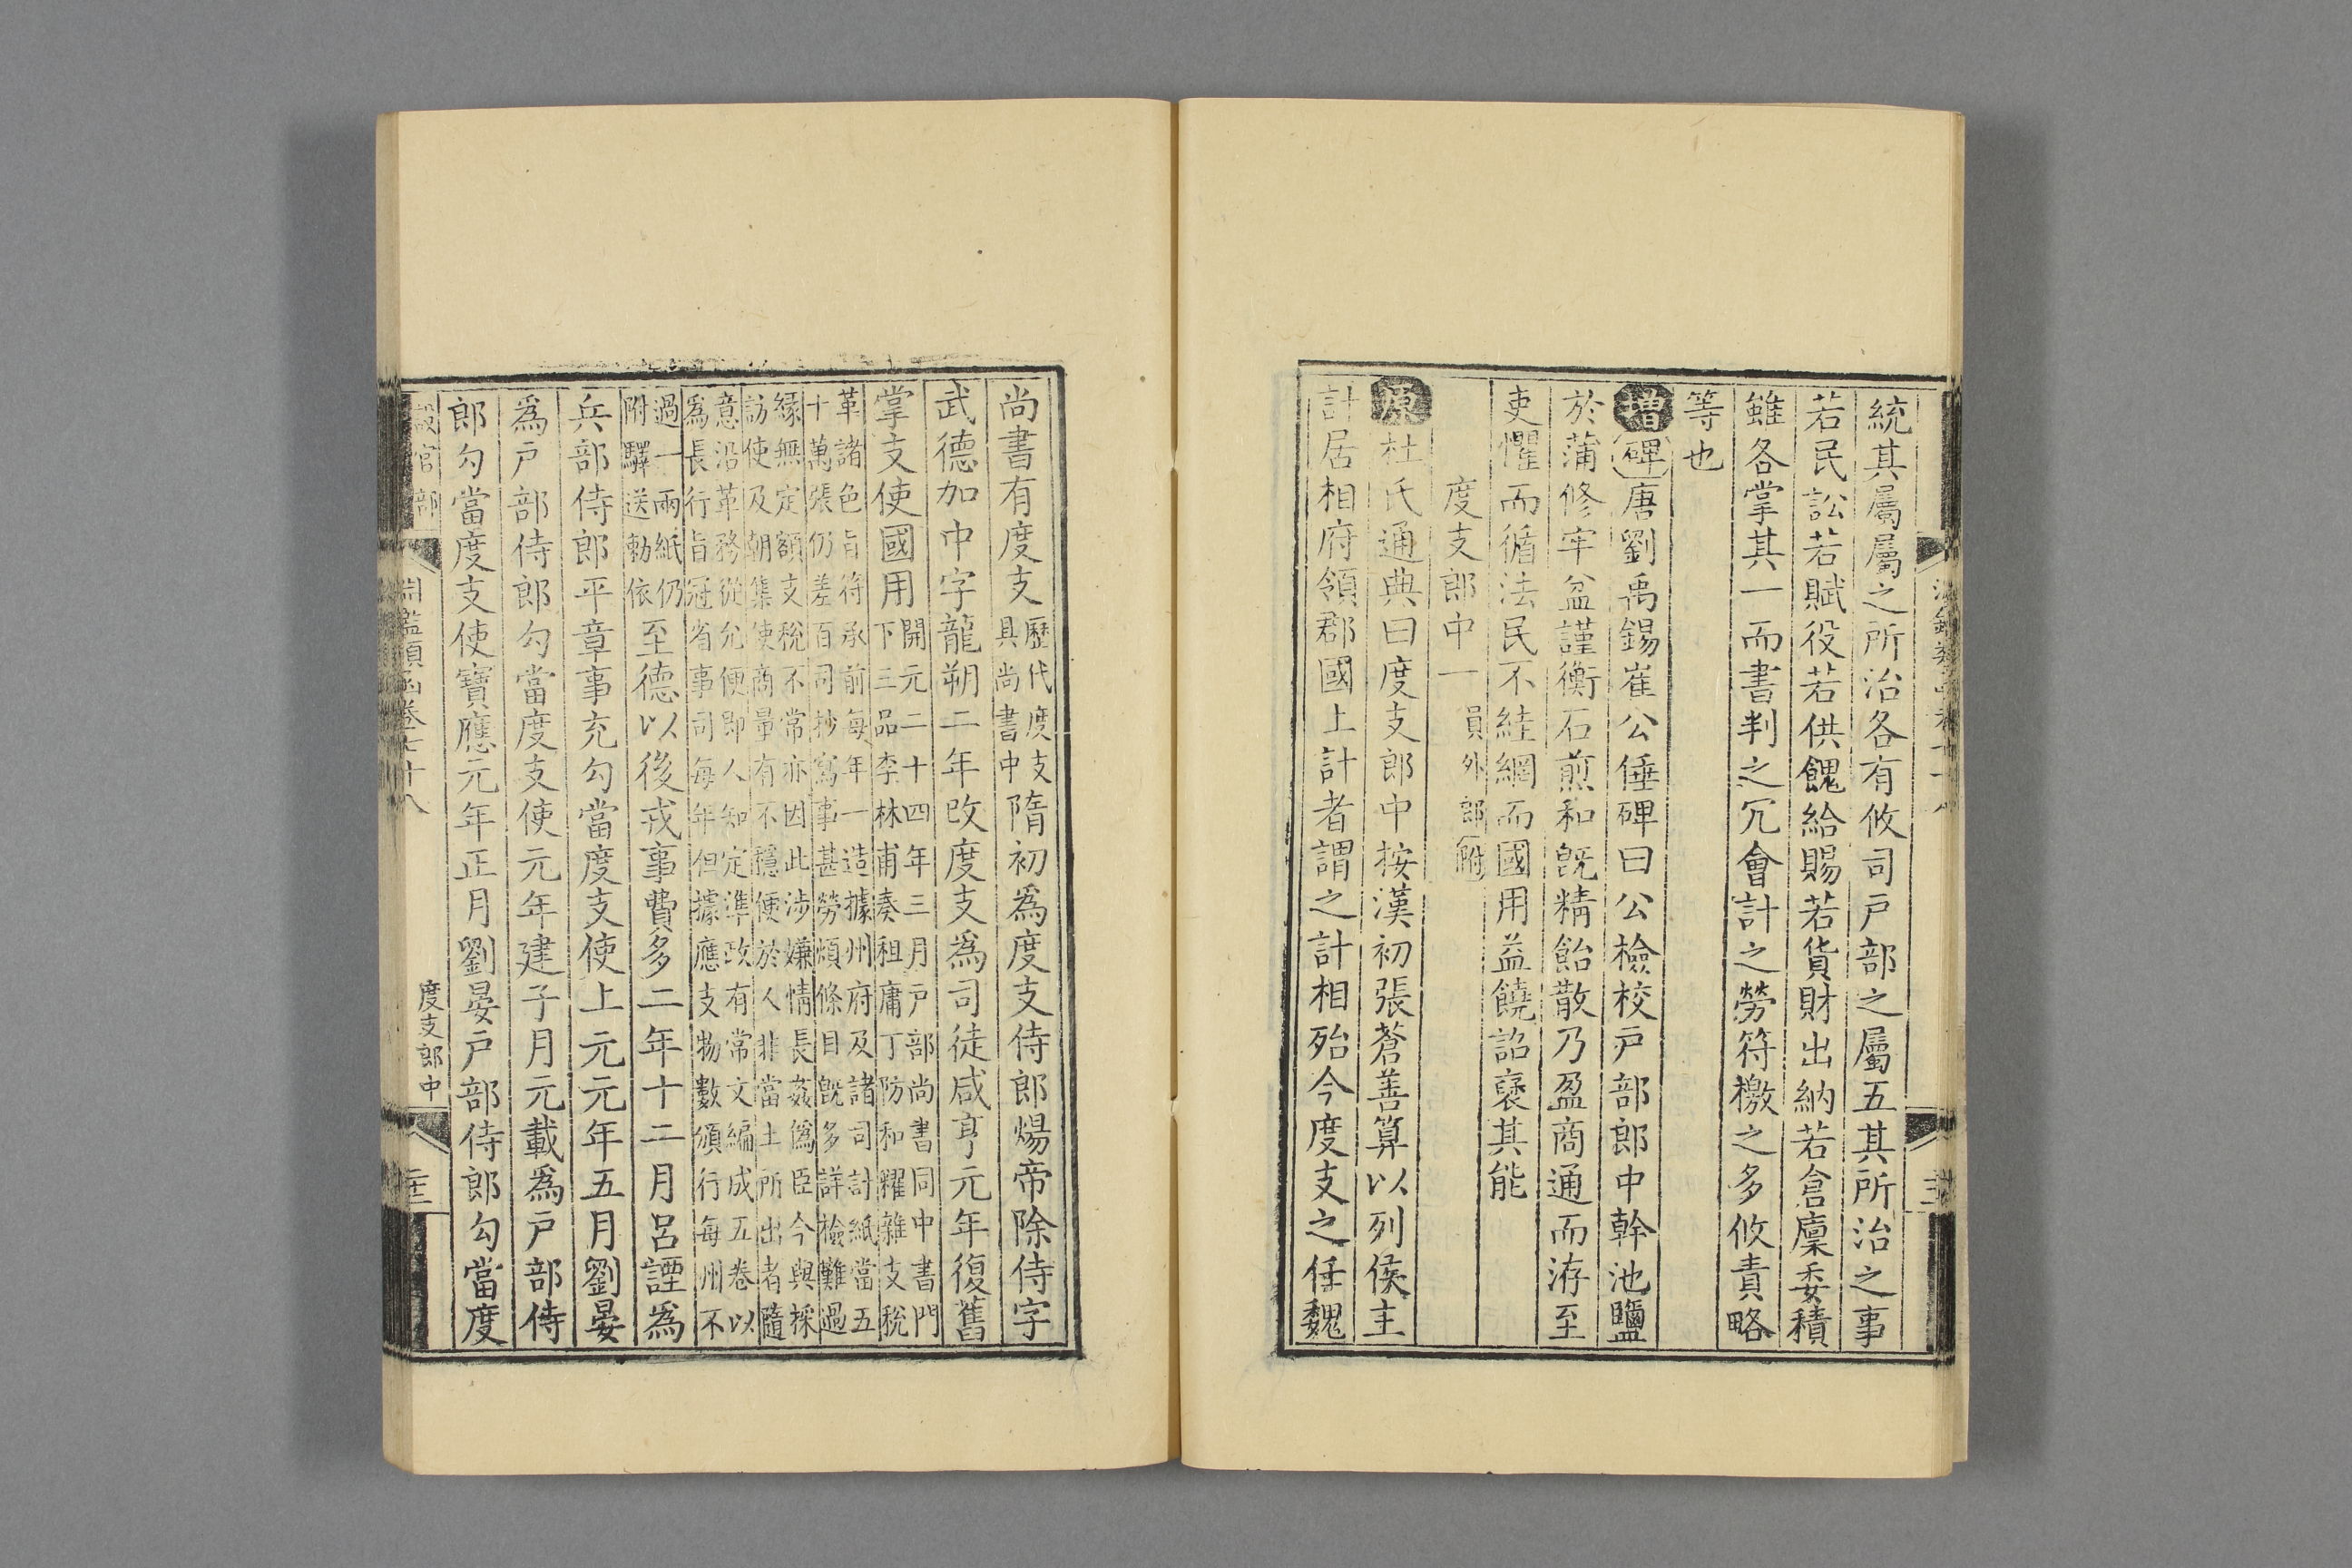 統其屬屬之所治各有攸司戶部之屬五其所治之事
若民訟若賦役若供餽給賜若貨財出納若倉廩委積
雖各掌其一而書判之冗會計之勞符檄之多攸責略
等也
增碑唐劉禹錫崔公倕碑曰公檢校戶部郎中幹池鹽
於蒲修牢盆謹衡石煎和旣精飴散乃盈商通而洊至
吏懼而循法民不絓網而國用益饒詔褒其能
度支郎中一員外郎附
原杜氏通典曰度支郎中按漢初張蒼善算以列侯主
計居相府領郡國上計者謂之計相殆今度支之任魏
尚書有度支歷代度支具尚書中隋初爲度支侍郎煬帝除侍字
武德加中字龍朔二年改度支爲司徒咸亨元年復舊
掌支使國用開元二十四年三月戶部尚書同中書門
下三品李林甫奏租庸丁防和糴雜支稅
革諸色旨符承前每年一造據州府及諸司計紙當五
十萬張仍差百司抄寫事甚勞煩條目旣多詳檢難過
緣無定額支稅不常亦因此涉嫌情長姦僞臣今與採
訪使及朝集使商量有不穩便於人非當土所出者隨
意沿革務從允便即人知定準政有常文編成五卷以
爲長行旨冠省事司每年但據應支物數頒行每州不
過一兩紙仍
附驛送勅依
至德以後戎事費多二年十二月呂諲爲
兵部侍郎平章事充勾當度支使上元元年五月劉晏
爲戶部侍郎勾當度支使元年建子月元載爲戶部侍
郎勾當度支使寶應元年正月劉晏戶部侍郎勾當度
設官部
淵鑑類函卷七十八
度支郎中